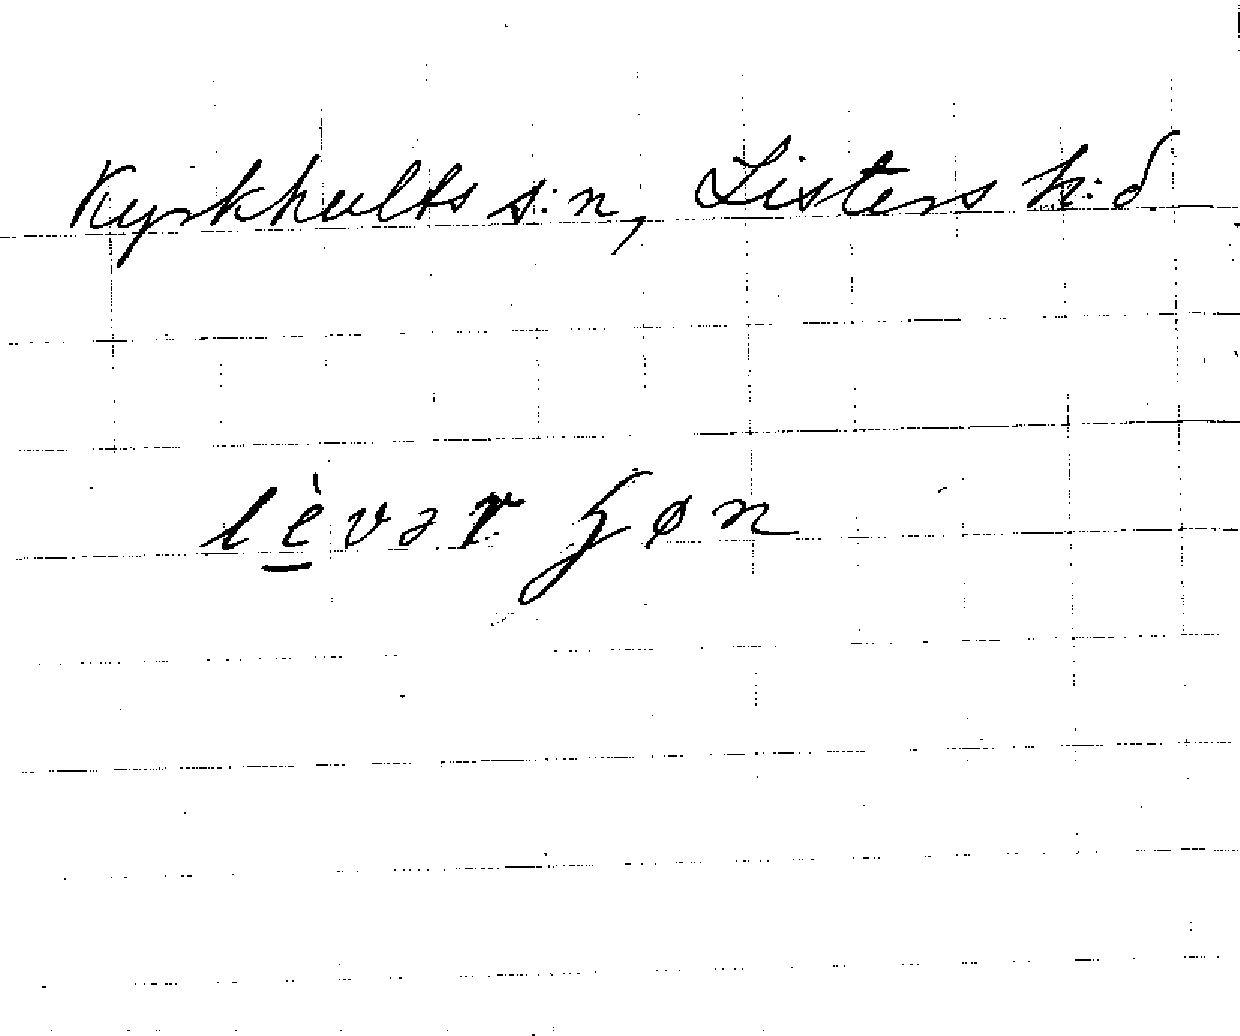 Kyrkhults s:n, Listers h:d
lèvər ʒøn